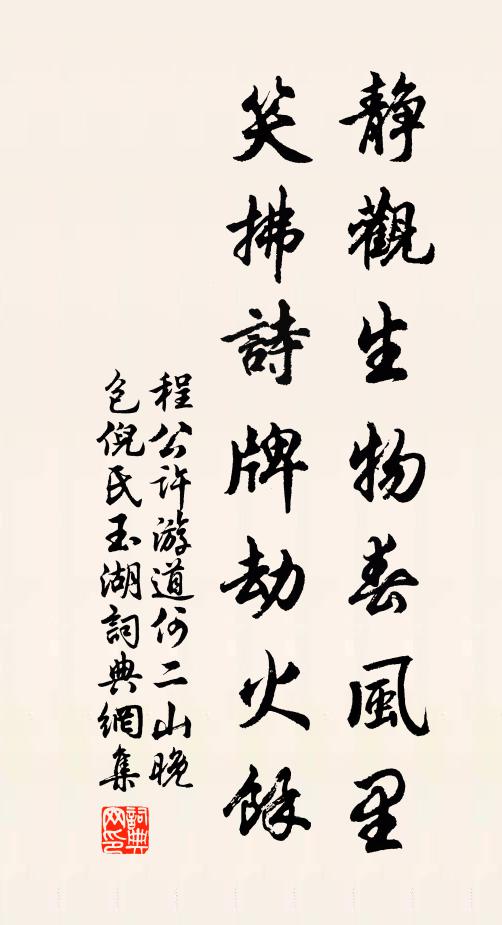 靜觀生物春風里
笑拂詩牌劫火餘
程公許游道何二山晚
包倪氏玉湖詞典網集
詞典網印